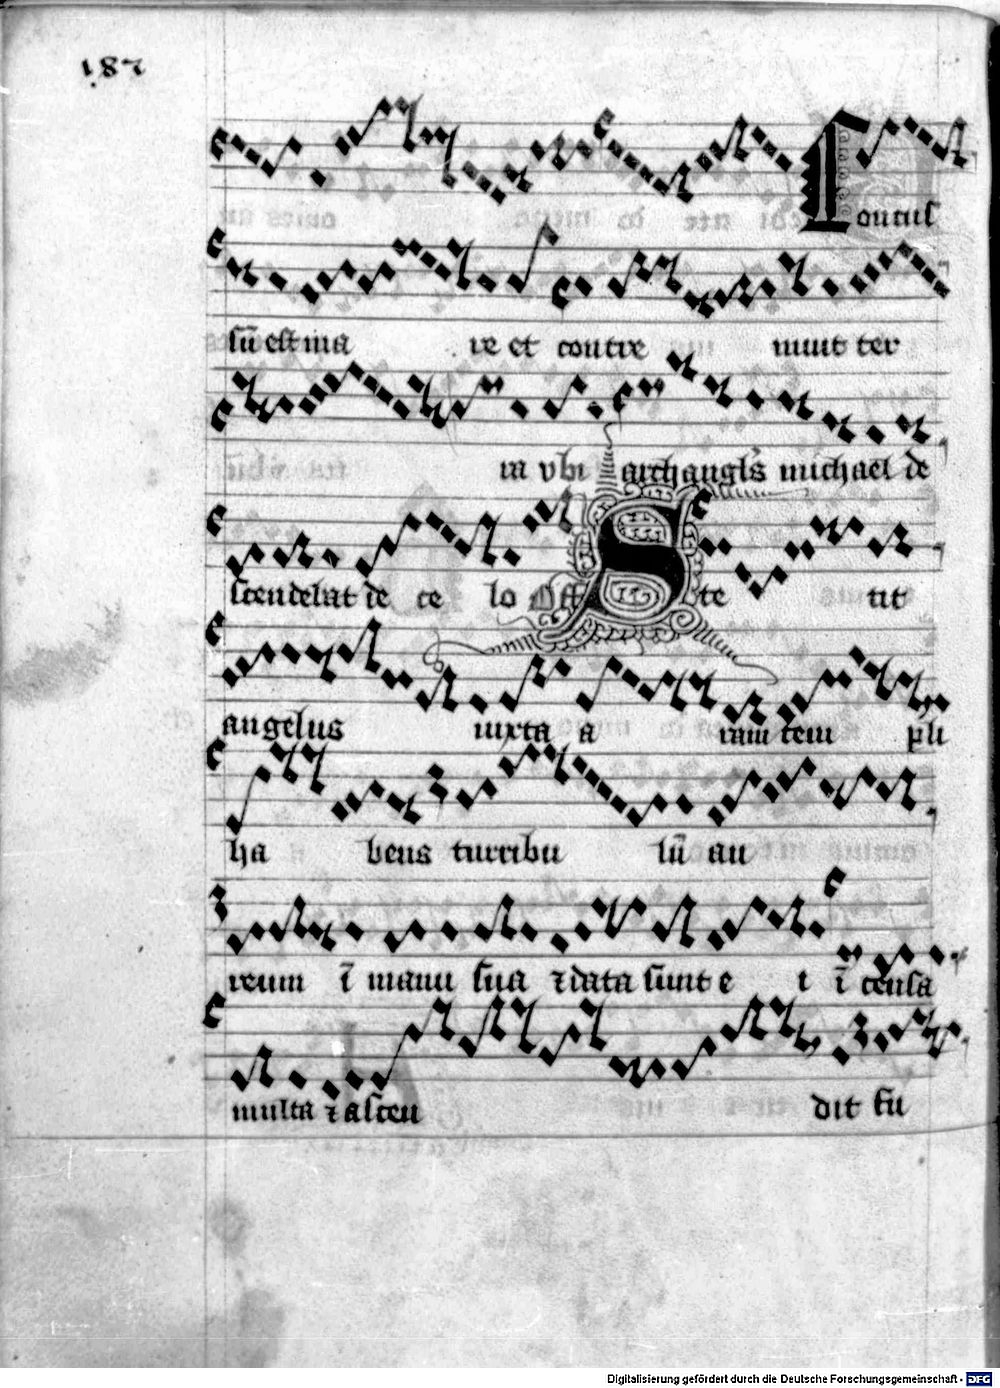 182
Concuſ
ſū eſt ma re et contre muit ter
ra vbi archangl's michael de
ſcendebat de ce lo Off Ste tit
angelus iuxta a ram tem pli
ha bens turribu lū au
reum ī manu ſua ⁊ data ſunt e i ī cenſa
multa ⁊ aſcen dit fu
Digitalisierung gefördert durch die Deutsche Forschungsgemeinschaft - DFG